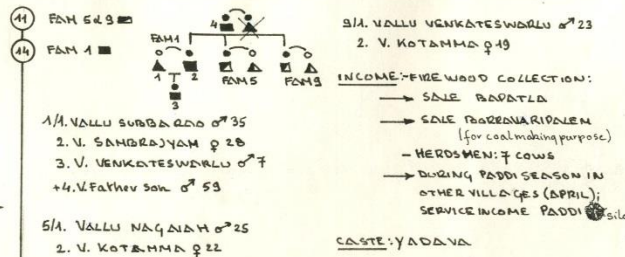 11 FAM 5&9
14 FAM 1
4
FAM1
1 2 FAM5 FAM9
3
1/1. VALLU SUBBARAO ♂ 35
2. V. SAMBRAJYAM ♀ 28
3. V. VENKATESWARLU ♂ 7
+4. V. Father son ♂ 59
5/1. VALLU NAGAIAH ♂ 25
2. V. KOTAMMA ♀ 22
9/1. VALLU VENKATESWARLU ♂ 23
2. V. KOTAMMA ♀ 19
INCOME:-FIREWOOD COLLECTION:
→ SALE BAPATLA
→ SALE BORRAVARIPALEM
(for coalmaking purpose)
- HERDSMEN: 7 COWS
→ DURING PADDI SEASON IN
OTHER VILLAGES (APRIL);
SERVICE INCOME PADDI silo
CASTE: YADAVA